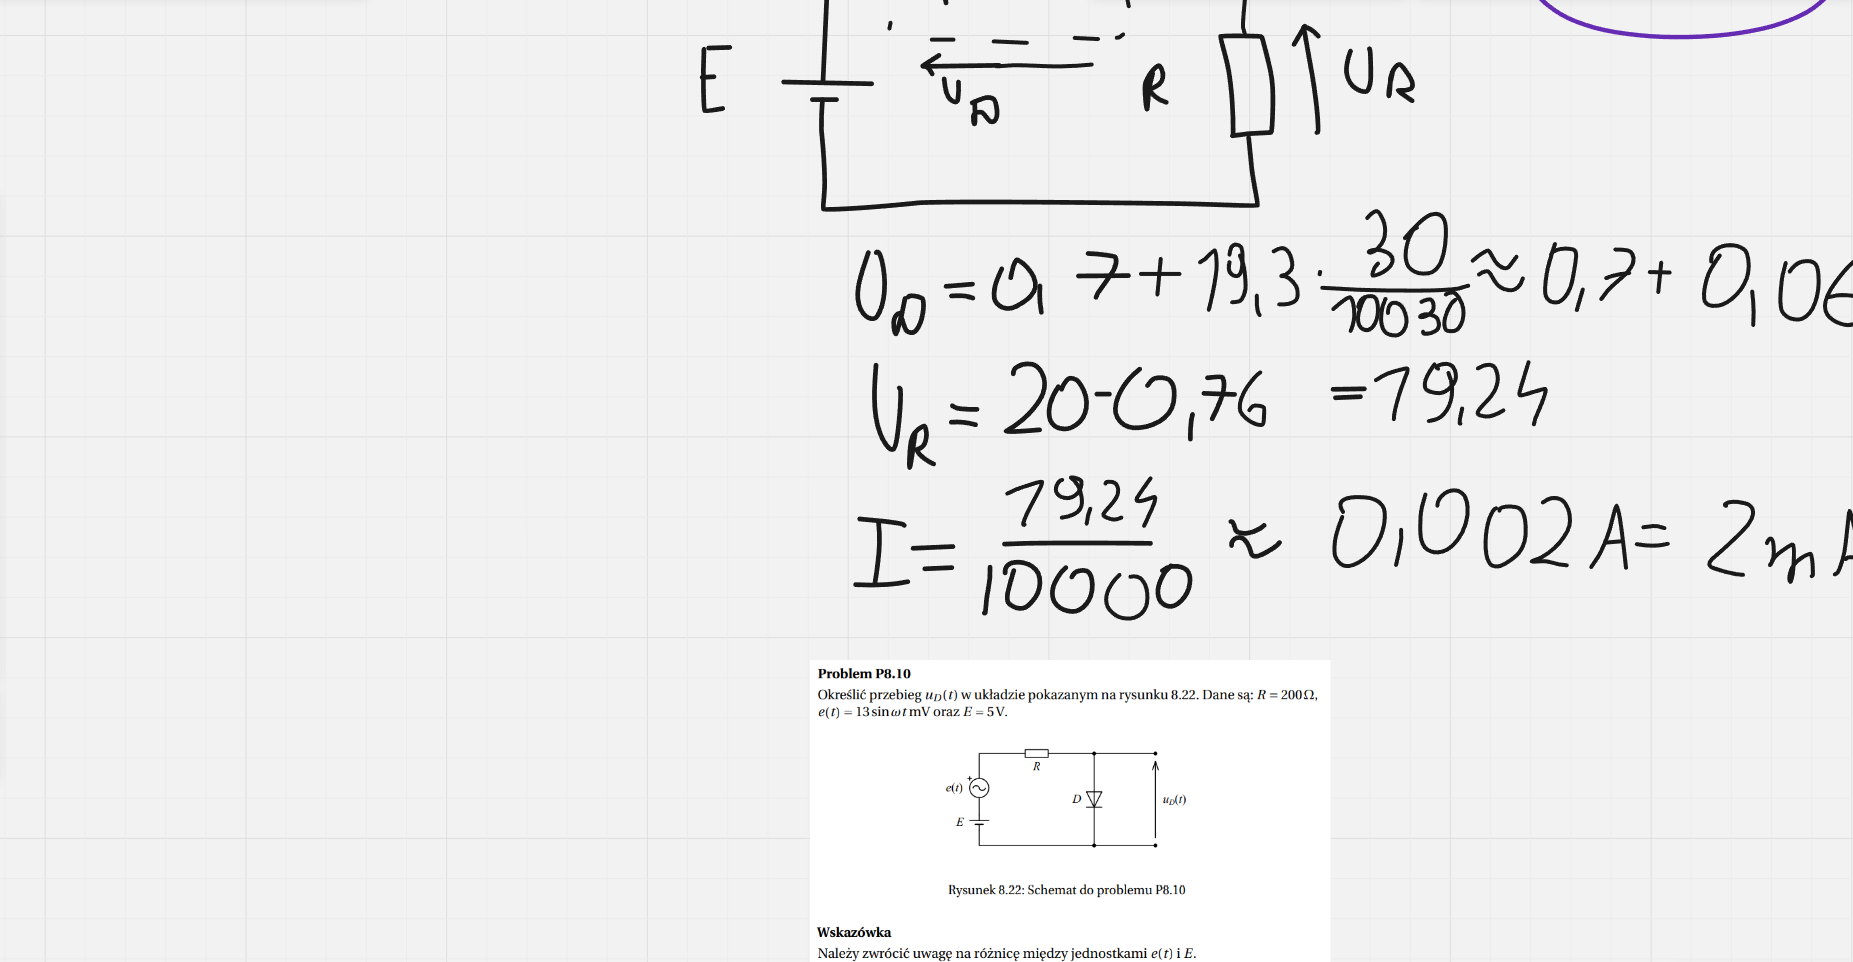 E
U_D
R
U_R
U_D = 0,7 + 19,3 · 30/10030 ≈ 0,7 + 0,06
U_R = 20 - 0,76 = 19,24
I = 19,24/10000 ≈ 0,002 A = 2 mA
Problem P8.10
Określić przebieg u_D(t) w układzie pokazanym na rysunku 8.22. Dane są: R = 200 Ω,
e(t) = 13 sin ωt mV oraz E = 5 V.
R
+
e(t)
D
u_D(t)
E
Rysunek 8.22: Schemat do problemu P8.10
Wskazówka
Należy zwrócić uwagę na różnicę między jednostkami e(t) i E.